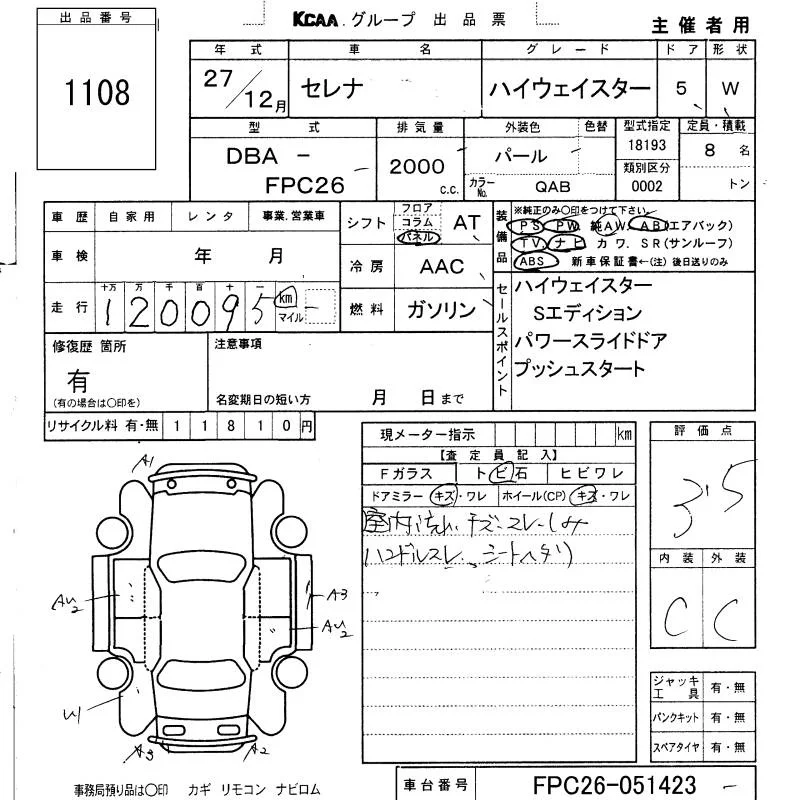 出品番号
1108
KCAA.グループ 出品票
主催者用
年式 車名 グレード ドア 形状
27/12月 セレナ ハイウェイスター 5 W
型式 排気量 外装色 色替 型式指定 定員・積載
DBA - FPC26 2000 c.c. パール 18193 8名
カラーNo. QAB 類別区分 0002 トン
車歴 自家用 レンタ 事業、営業車
シフト フロア コラム パネル AT
装備品 ※純正のみ○印をつけて下さい。
PS PW 純AW AB(エアバック)
TV ナビ カワ SR(サンルーフ)
ABS 新車保証書←(注)後日送りのみ
車検 年 月
冷房 AAC
走行 十万 万 千 百 十 一
120095 km マイル
燃料 ガソリン
セールスポイント
ハイウェイスター
Sエディション
パワースライドドア
プッシュスタート
修復歴 箇所
有
(有の場合は○印を)
注意事項
名変期日の短い方 月 日まで
リサイクル料 有・無 11810円
現メーター指示 km
【査定員記入】
Fガラス トビ石 ヒビワレ
ドアミラー キズ・ワレ ホイール(CP) キズ・ワレ
室内汚れ、キズ・スレ・シミ
ハンドルスレ、シートヘタリ
評価点
3.5
内装 外装
C C
A1
AU2
A3
AU2
U1
A3
A2
ジャッキ工具 有・無
パンクキット 有・無
スペアタイヤ 有・無
事務局預り品は○印 カギ リモコン ナビロム
車台番号 FPC26-051423